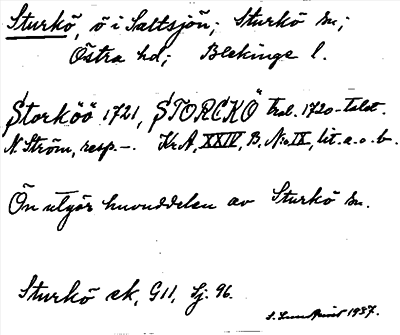 Sturkö, ö i Saltsjön; Sturkö sn;
Östra hd; Blekinge l.
Storköö 1721, STORCKÖ trol. 1720-talet.
N. Ström, resp. –. Kr.A, XXIV, B, No IX, lit. a. o. b.
Ön utgör huvuddelen av Sturkö sn.
Sturkö ek, G11, Sj. 96.
1937.